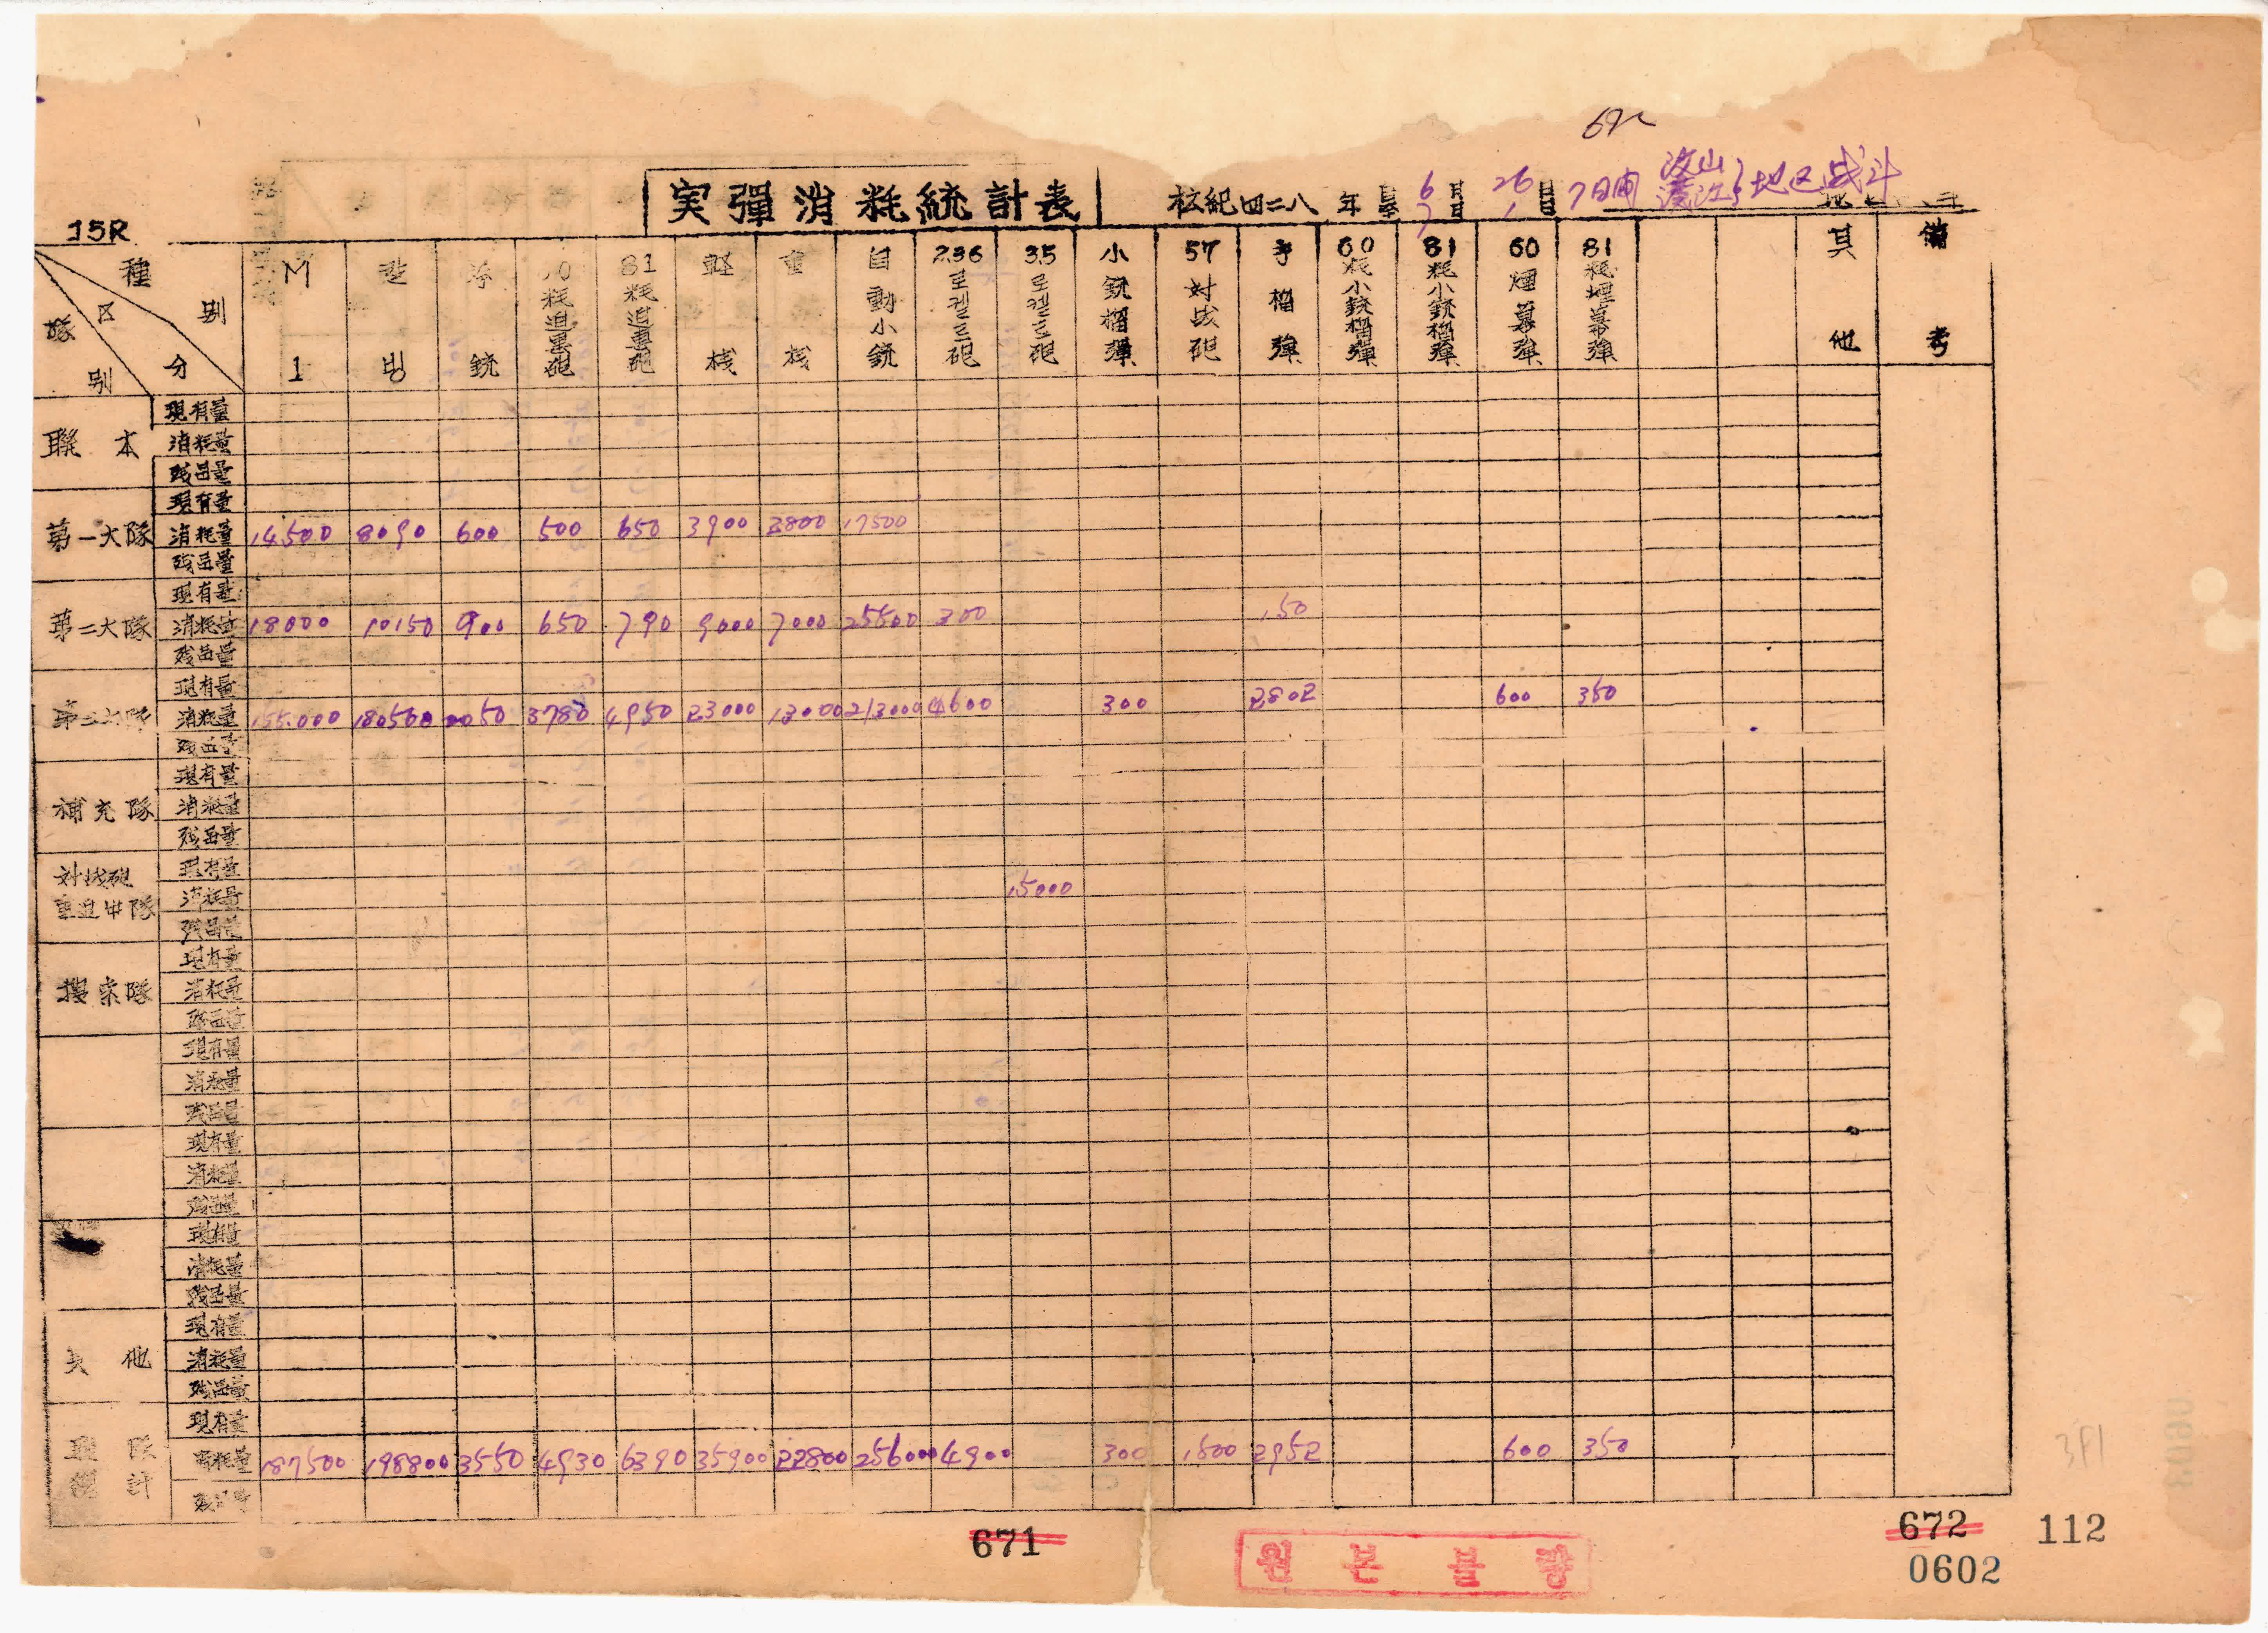 実彈消耗統計表
15R
6 月 26 日
7 月 1 日
7日間
汶山
渡江
地区战斗
種 別
区 分
隊 別
M 1
칼 빙
拳 銃
60 粍迫擊砲
81 粍迫擊砲
軽 機
重 機
自動小銃
2.36 로켙트砲
3.5 로켙트砲
小銃榴彈
57 対战砲
手榴彈
60 粍小銃榴彈
81 粍小銃榴彈
60 煙幕彈
81 粍煙幕彈
其他
備考
聯本
現有量
消耗量
残品量
第一大隊
現有量
消耗量 14500 8090 600 500 650 3900 2800 17500
残品量
第二大隊
現有量
消耗量 18000 10150 900 650 790 9000 7000 25500 300 150
残品量
第三大隊
現有量
消耗量 155.000 180560 2050 3780 4950 23000 13000 213000 4600 300 2802 600 350
残品量
補充隊
現有量
消耗量
残品量
対战砲
重迫中隊
現有量
消耗量 15000
残品量
搜索隊
現有量
消耗量
残品量
現有量
消耗量
残品量
現有量
消耗量
残品量
現有量
消耗量
残品量
其他
現有量
消耗量
残品量
聯隊
総計
現有量
消耗量 187500 198800 3550 4930 6390 35900 22800 256000 4900 300 1500 2952 600 350
残品量
671
원본불량
672
112
0602